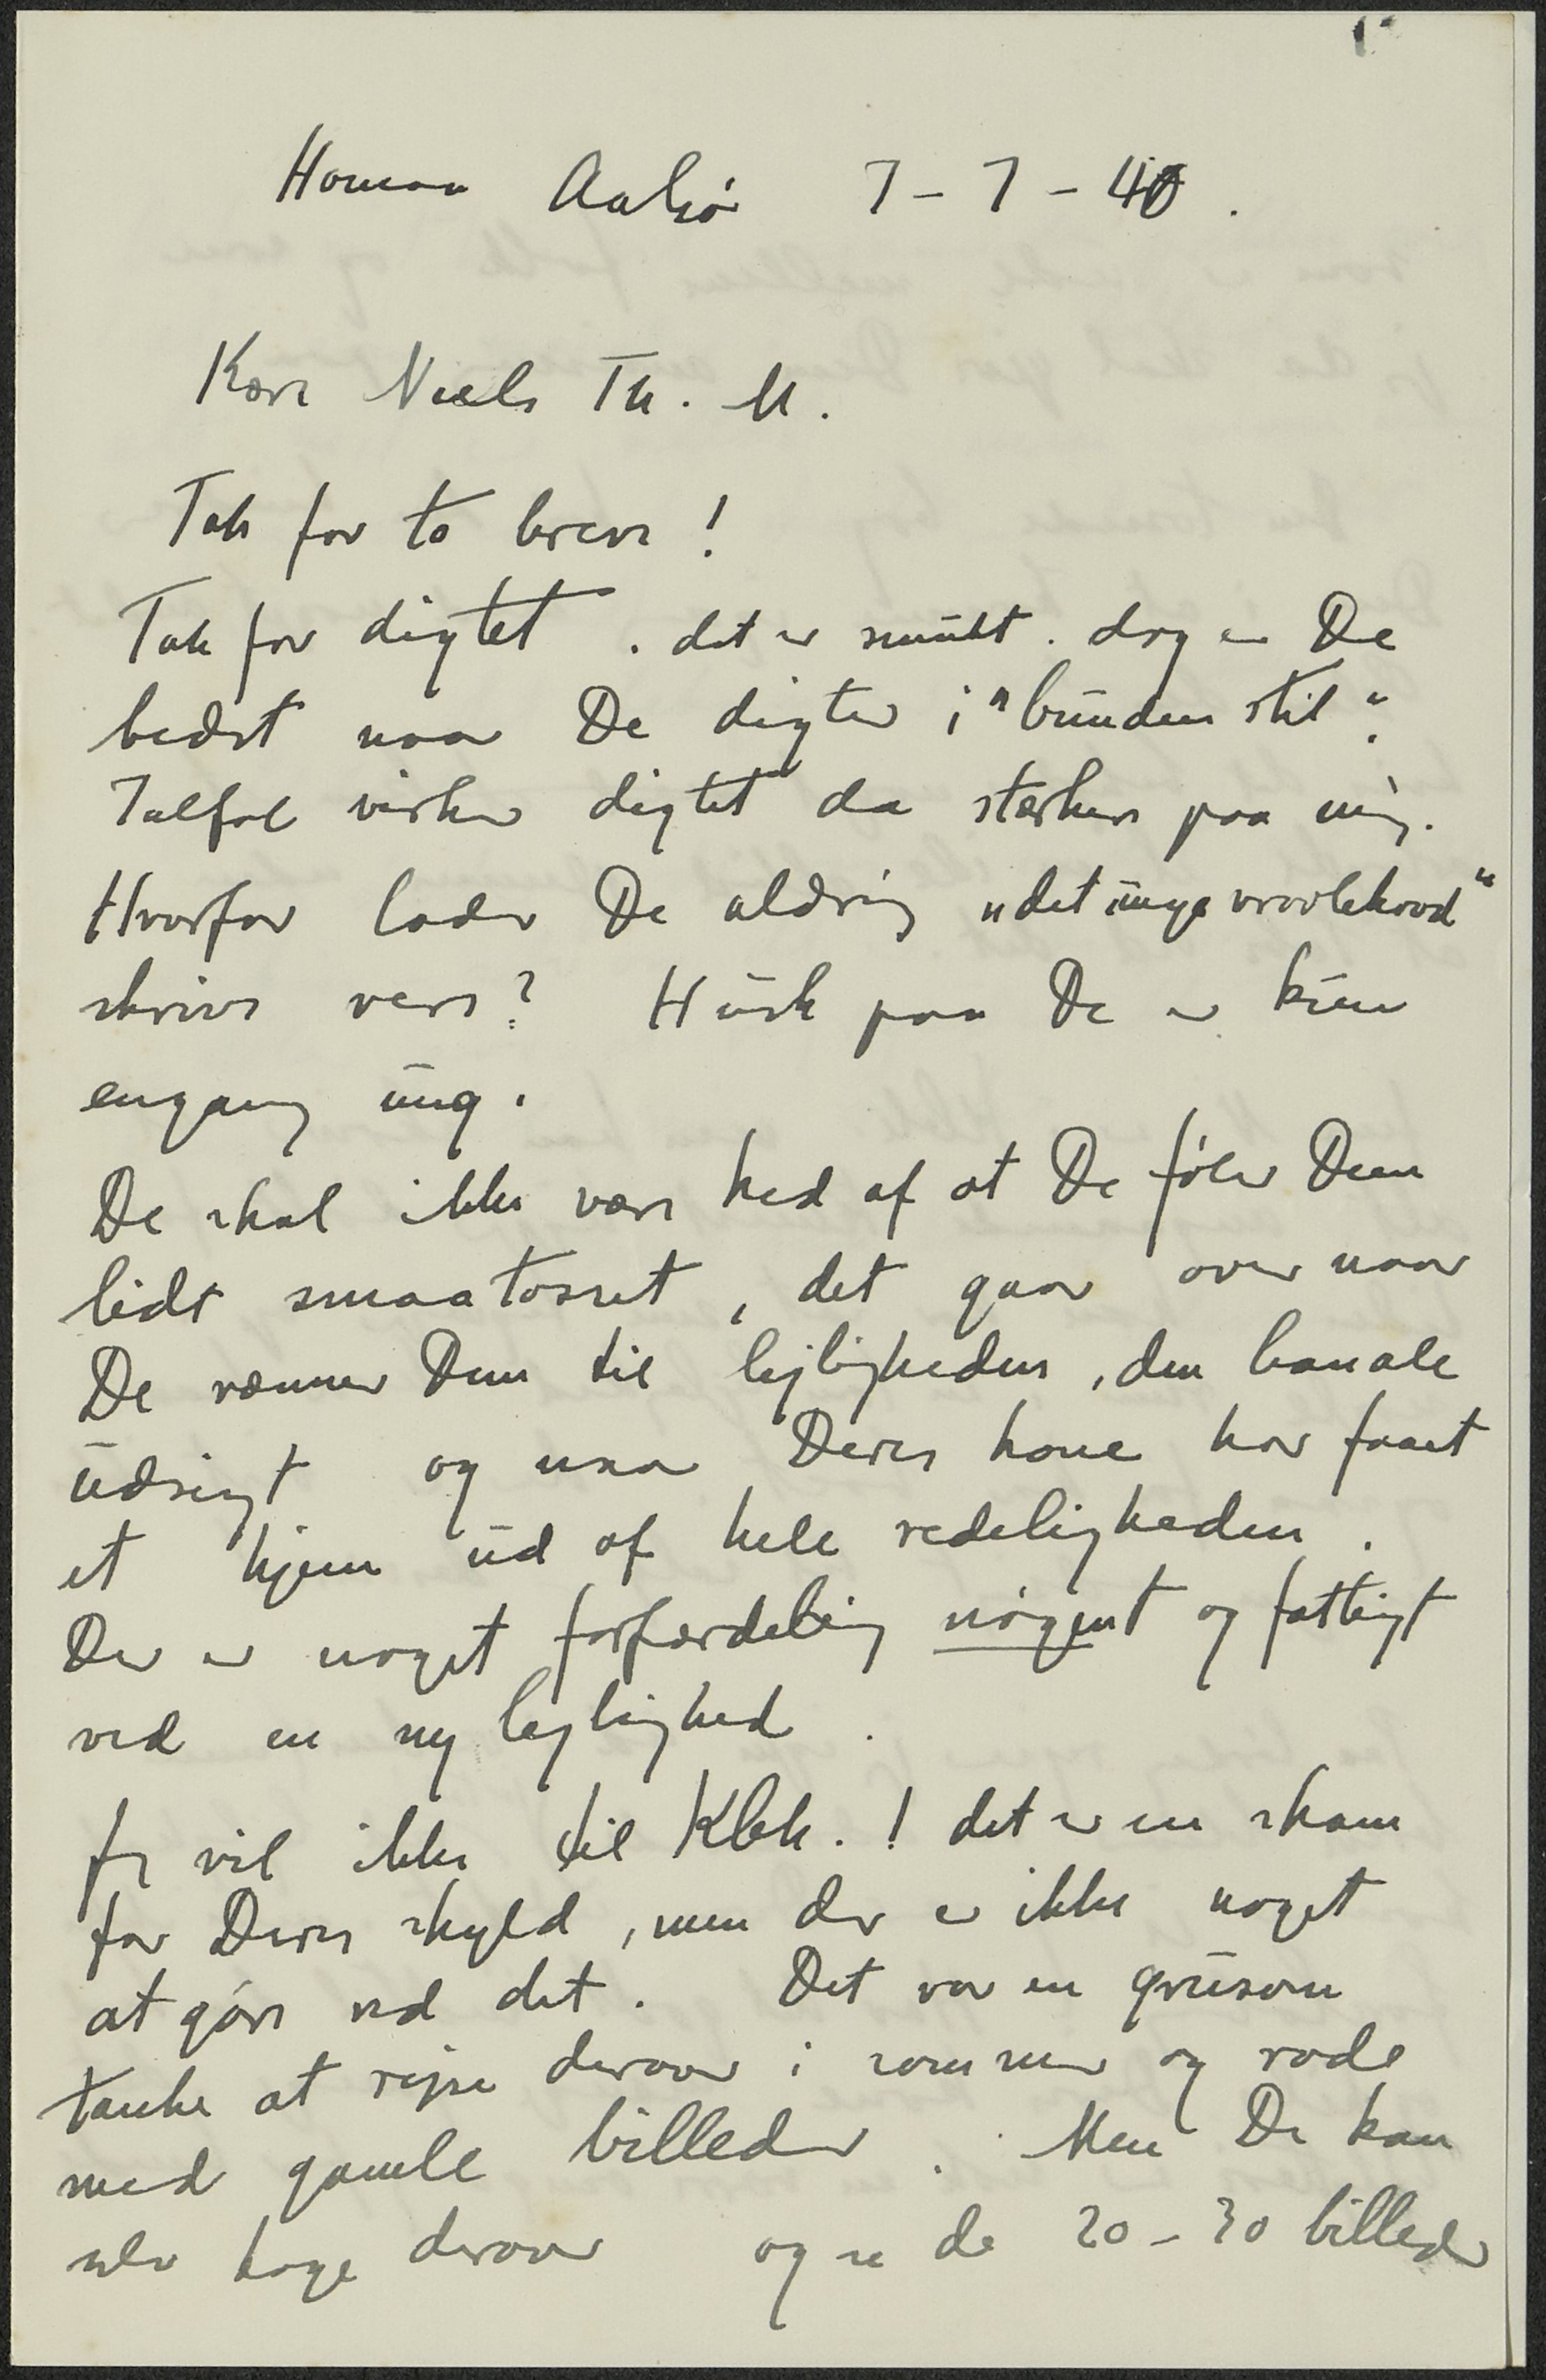 Homaa Aalsø 7-7-40.
Kære Niels Th. M.
Tak for to breve!
Tak for digtet. det er smukt. dog er De
bedst naar De digter i "bunden stil".
Ialfal virker digtet da stærkere paa mig.
Hvorfor lader De aldrig "det unge vrøvlehoved"
skrive vers? Husk paa De er kun
engang ung.
De skal ikke være ked af at De føler Dem
lidt smaatosset, det gaar over naar
De vænner Dem til lejligheden, den banale
udsigt og naar Deres kone har faaet
et hjem ud af hele redeligheden.
Der er noget forfærdelig nøgent og fattigt
ved en ny lejlighed.
Jeg vil ikke til Kbh.! det er en skam
for Deres skyld, men der er ikke noget
at gøre ved det. Det var en grusom
tanke at rejse derover i sommer og rode
med gamle billeder. Men De kan
selv tage derover og se de 20-30 billeder